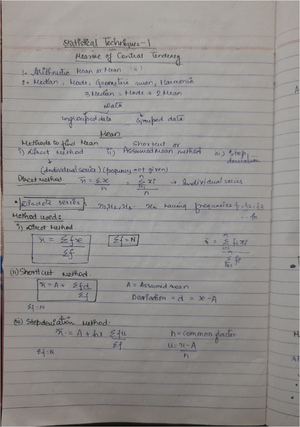 Statistical Techniques-1
Measure of Central Tendency
1. Arithmetic Mean or Mean
2. Median, Mode, Geometric mean, Harmonic
3Median = Mode + 2Mean
Data
Ungrouped data Grouped data
Mean
Methods to find Mean
Shortcut or
i) Direct Method ii) Assumed Mean method iii) Step deviation
(Individual series) (frequency not given)
Direct method x̄ = Σx / n → Individual series
Discrete series: having frequencies
Method used:
i) Direct Method
x̄ = Σfx / Σf Σf = N
(ii) Shortcut Method:
x̄ = A + Σfd / Σf A = Assumed mean
Deviation = d = x-A
Σf = N
(iii) Step deviation Method:
x̄ = A + h× Σfu / Σf h = common factor
Σf = N u = x-A / h